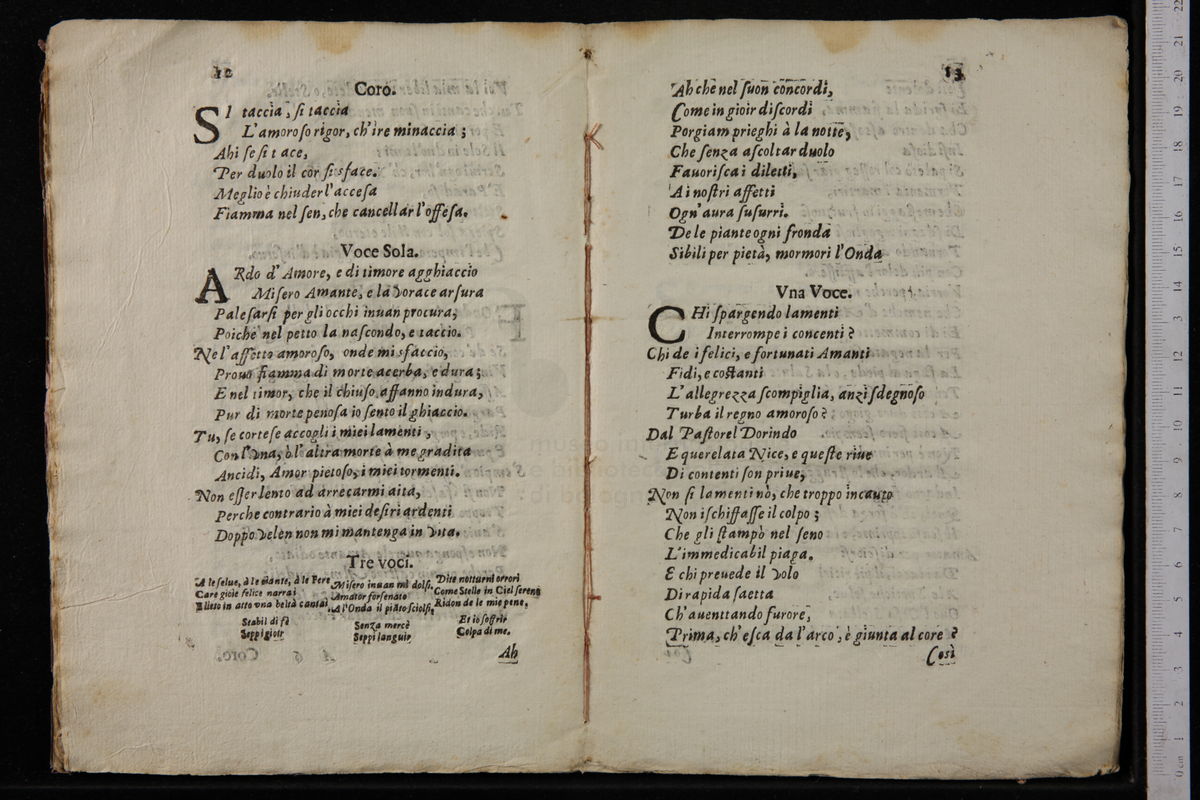 12
Coro.
SI taccia, si taccia
L'amoroso rigor, ch'ire minaccia;
Ahi se si tace,
Per duolo il cor si sface.
Meglio è chiuder l'accesa
Fiamma nel sen, che cancellar l'offesa.
Voce Sola.
ARdo d'Amore, e di timore agghiaccio
Misero Amante, e la vorace arsura
Palesarsi per gli occhi inuan procura,
Poiche nel petto la nascondo, e taccio.
Ne l'affetto amoroso, onde mi sfaccio,
Prouo fiamma di morte acerba, e dura;
E nel timor, che il chiuso affanno indura,
Pur di morte penosa io sento il ghiaccio.
Tu, se cortese accogli i miei lamenti,
Con l'vna, ò l'altra morte à me gradita
Ancidi, Amor pietoso, i miei tormenti.
Non esser lento ad arrecarmi aita,
Perche contrario à miei desiri ardenti
Doppo velen non mi mantenga in vita.
Tre voci.
A le selue, à le piante, à le Fere
Care gioie felice narrai
E lieto in atto vna beltà cantai,
Stabil di fè
Seppi gioir
Misero inuan mi dolsi,
Amator forsenato
A l'Onda il piãto sciolsi,
Senza mercè
Seppi languir
Dite notturni orrori
Come Stelle in Ciel serene
Ridon de le mie pene,
Et io soffrir
Colpa di me.
Ah
13
Ah che nel suon concordi,
Come in gioir discordi
Porgiam prieghi à la notte,
Che senza ascoltar duolo
Fauorisca i diletti,
A i nostri affetti
Ogn'aura susurri.
De le piante ogni fronda
Sibili per pietà, mormori l'Onda
Vna Voce.
CHi spargendo lamenti
Interrompe i concenti?
Chi de i felici, e fortunati Amanti
Fidi, e costanti
L'allegrezza scompiglia, anzi sdegnoso
Turba il regno amoroso?
Dal Pastorel Dorindo
E querelata Nice, e queste riue
Di contenti son priue,
Non si lamenti nò, che troppo incauto
Non ischiffasse il colpo;
Che gli stampò nel seno
L'immedicabil piaga.
E chi preuede il volo
Di rapida saetta
Ch'auenttando furore,
Prima, ch'esca da l'arco, è giunta al core?
Così